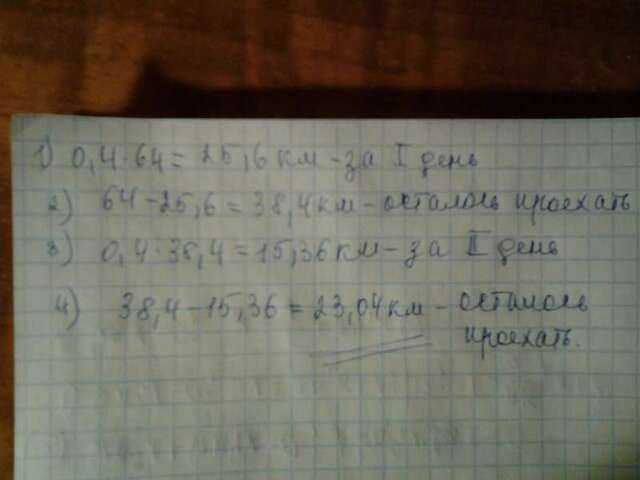 1) 0,4·64 = 25,6 км - за I день
2) 64 - 25,6 = 38,4 км - осталось проехать
3) 0,4·38,4 = 15,36 км - за II день
4) 38,4 - 15,36 = 23,04 км - осталось
проехать.